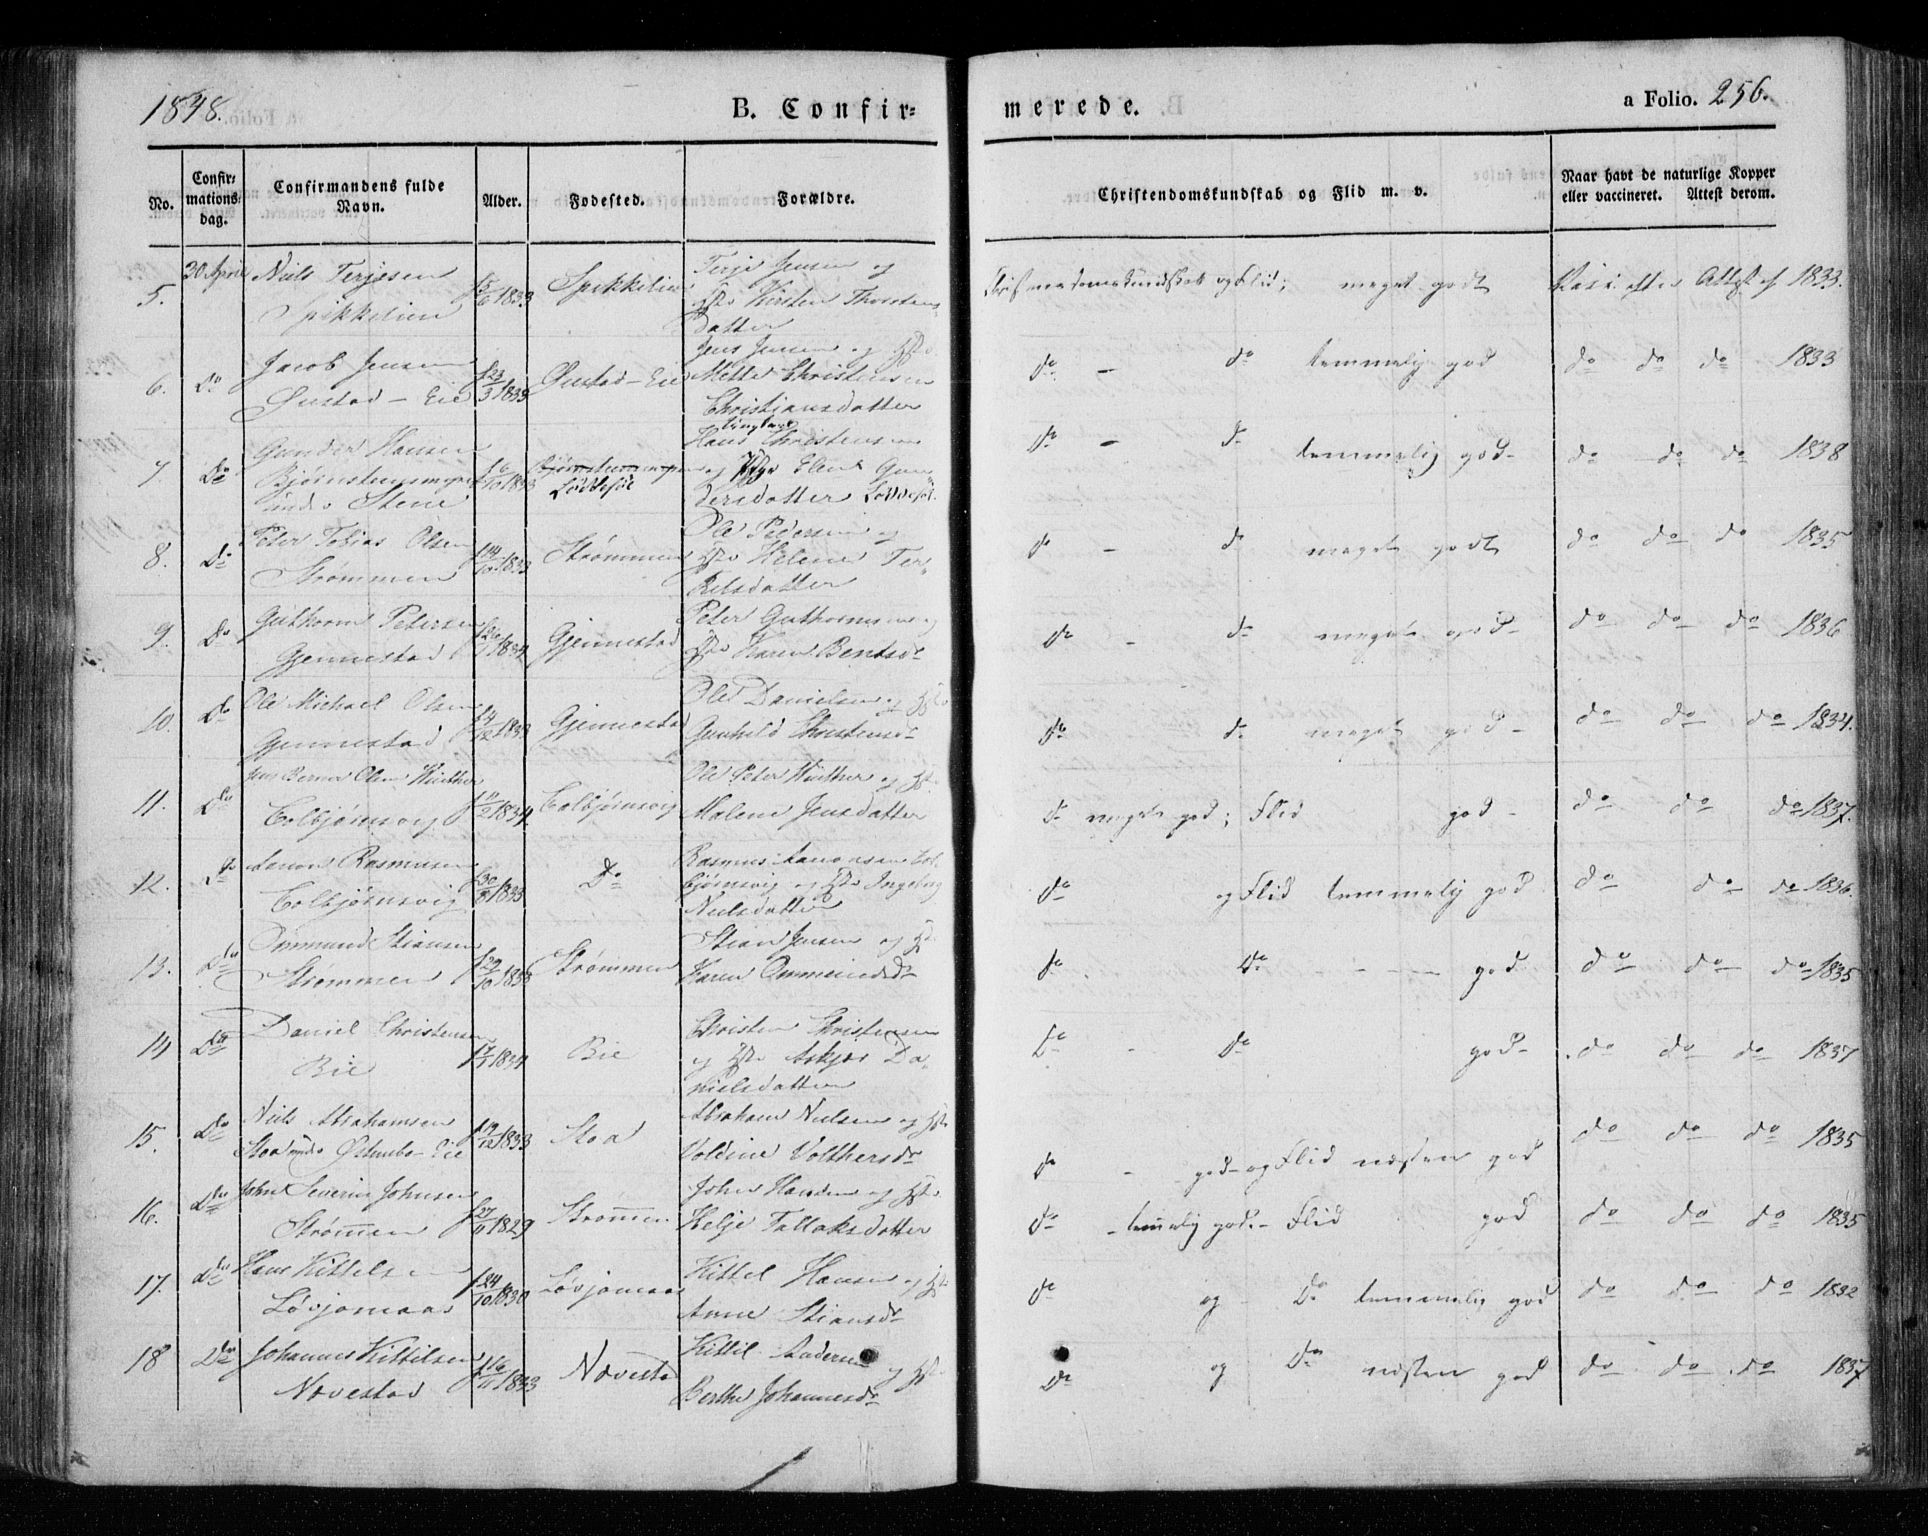 1848.
B. Confir=
merede.
a Folio. 256.
No.
Confir-
mations-
dag.
Confirmandens fulde
Navn.
Alder.
Fødested.
Forældre.
Christendomskundskab og Flid m. v.
Naar havt de naturlige Kopper
eller vaccineret. Attest derom.
5. 30 April Niels Terjesen
Spikkelien
1833 Spikkelien
Terje Jensen og
Kirsten Thorstens
datter
og Flid; meget godt
Attest af 1833.
6. Do Jacob Jensen
Øustad - Eie
23/3 1833 Øustad - Eie
Jens Jensen og Hst
Mette Christensen
Christiansdatter
do - do temmelig god
do do do 1833
7. Do Gunder Hansen
Bjørnstensmyren
under Stene
6/10 1833
Løddesøl
Hans Christensen
og Elen Gun
dersdatter Løddesøl
do - do temmelig god -
do do do 1838
8. Do Peter Tobias Olsen
Strømmen
14/10 1833 Strømmen
Ole Pedersen og
Helene Ter
kelsdatter
do - do meget godt
do do do 1835
9. Do Guthorm Petersen
Gjennestad
1834 Gjennestad
Peter Guthormsen og
Karen Bentsdr
do - do meget god -
do do do 1836
10. Do Ole Michael Olsen
Gjennestad
1833 Gjennestad
Ole Danielsen og Hst
Gunhild Christensdr
do do meget god -
do do do 1834.
11. Do Jens Berner Olsen Winther
Colbjørnsvig
11/2 1834. Colbjørnsvig
Ole Peter Winther og Hst
Malene Jensdatter
do meget god; Flid god -
do do do 1837.
12. Do Aanon Rasmusen
Colbjørnsvig
1833 Do
Rasmus Aanonsen Col
bjørnsvig og Hst Ingeborg
Nielsdatter
do og Flid temmelig god
do do do 1836.
13. Do Ommund Stiansen
Strømmen
29/10 1833 Strømmen
Stian Jensen og Hst
Karen Ommundsdr
do Do - - - god
do do do 1835
14 Do Daniel Christensen
Bie
1834 Bie
Christen Christensen
og Hst Askjær Da
nielsdatter
Do - Do god -
do do do 1837
15. Do Niels Abrahamsen
Stoa under Østenbo Eie
19/12 1833 Stoa
Abraham Nielsen og Hst
Voldine Volthersdr
do - god - og Flid næsten god
do do do 1835
16. Do John Severin Johnsen
Strømen
1829 Strømen
John Hansen og Hst
Helje Tallaksdatter
do - temelig god. - Flid god
do do do 1835
17. do Hans Kittelsen
Løvjomaas
24/10 1830 Løvjomaas
Kittel Hansen og Hst
Anne Stiansdr
do og - Do temmelig god
do do do 1832
18 Do Johannes Kittilsen
Nævestad
16/11 1833 Nævestad
Kittil Andersen og Hst
Berthe Johannesdr
Do og Do næsten god
do do do 1837